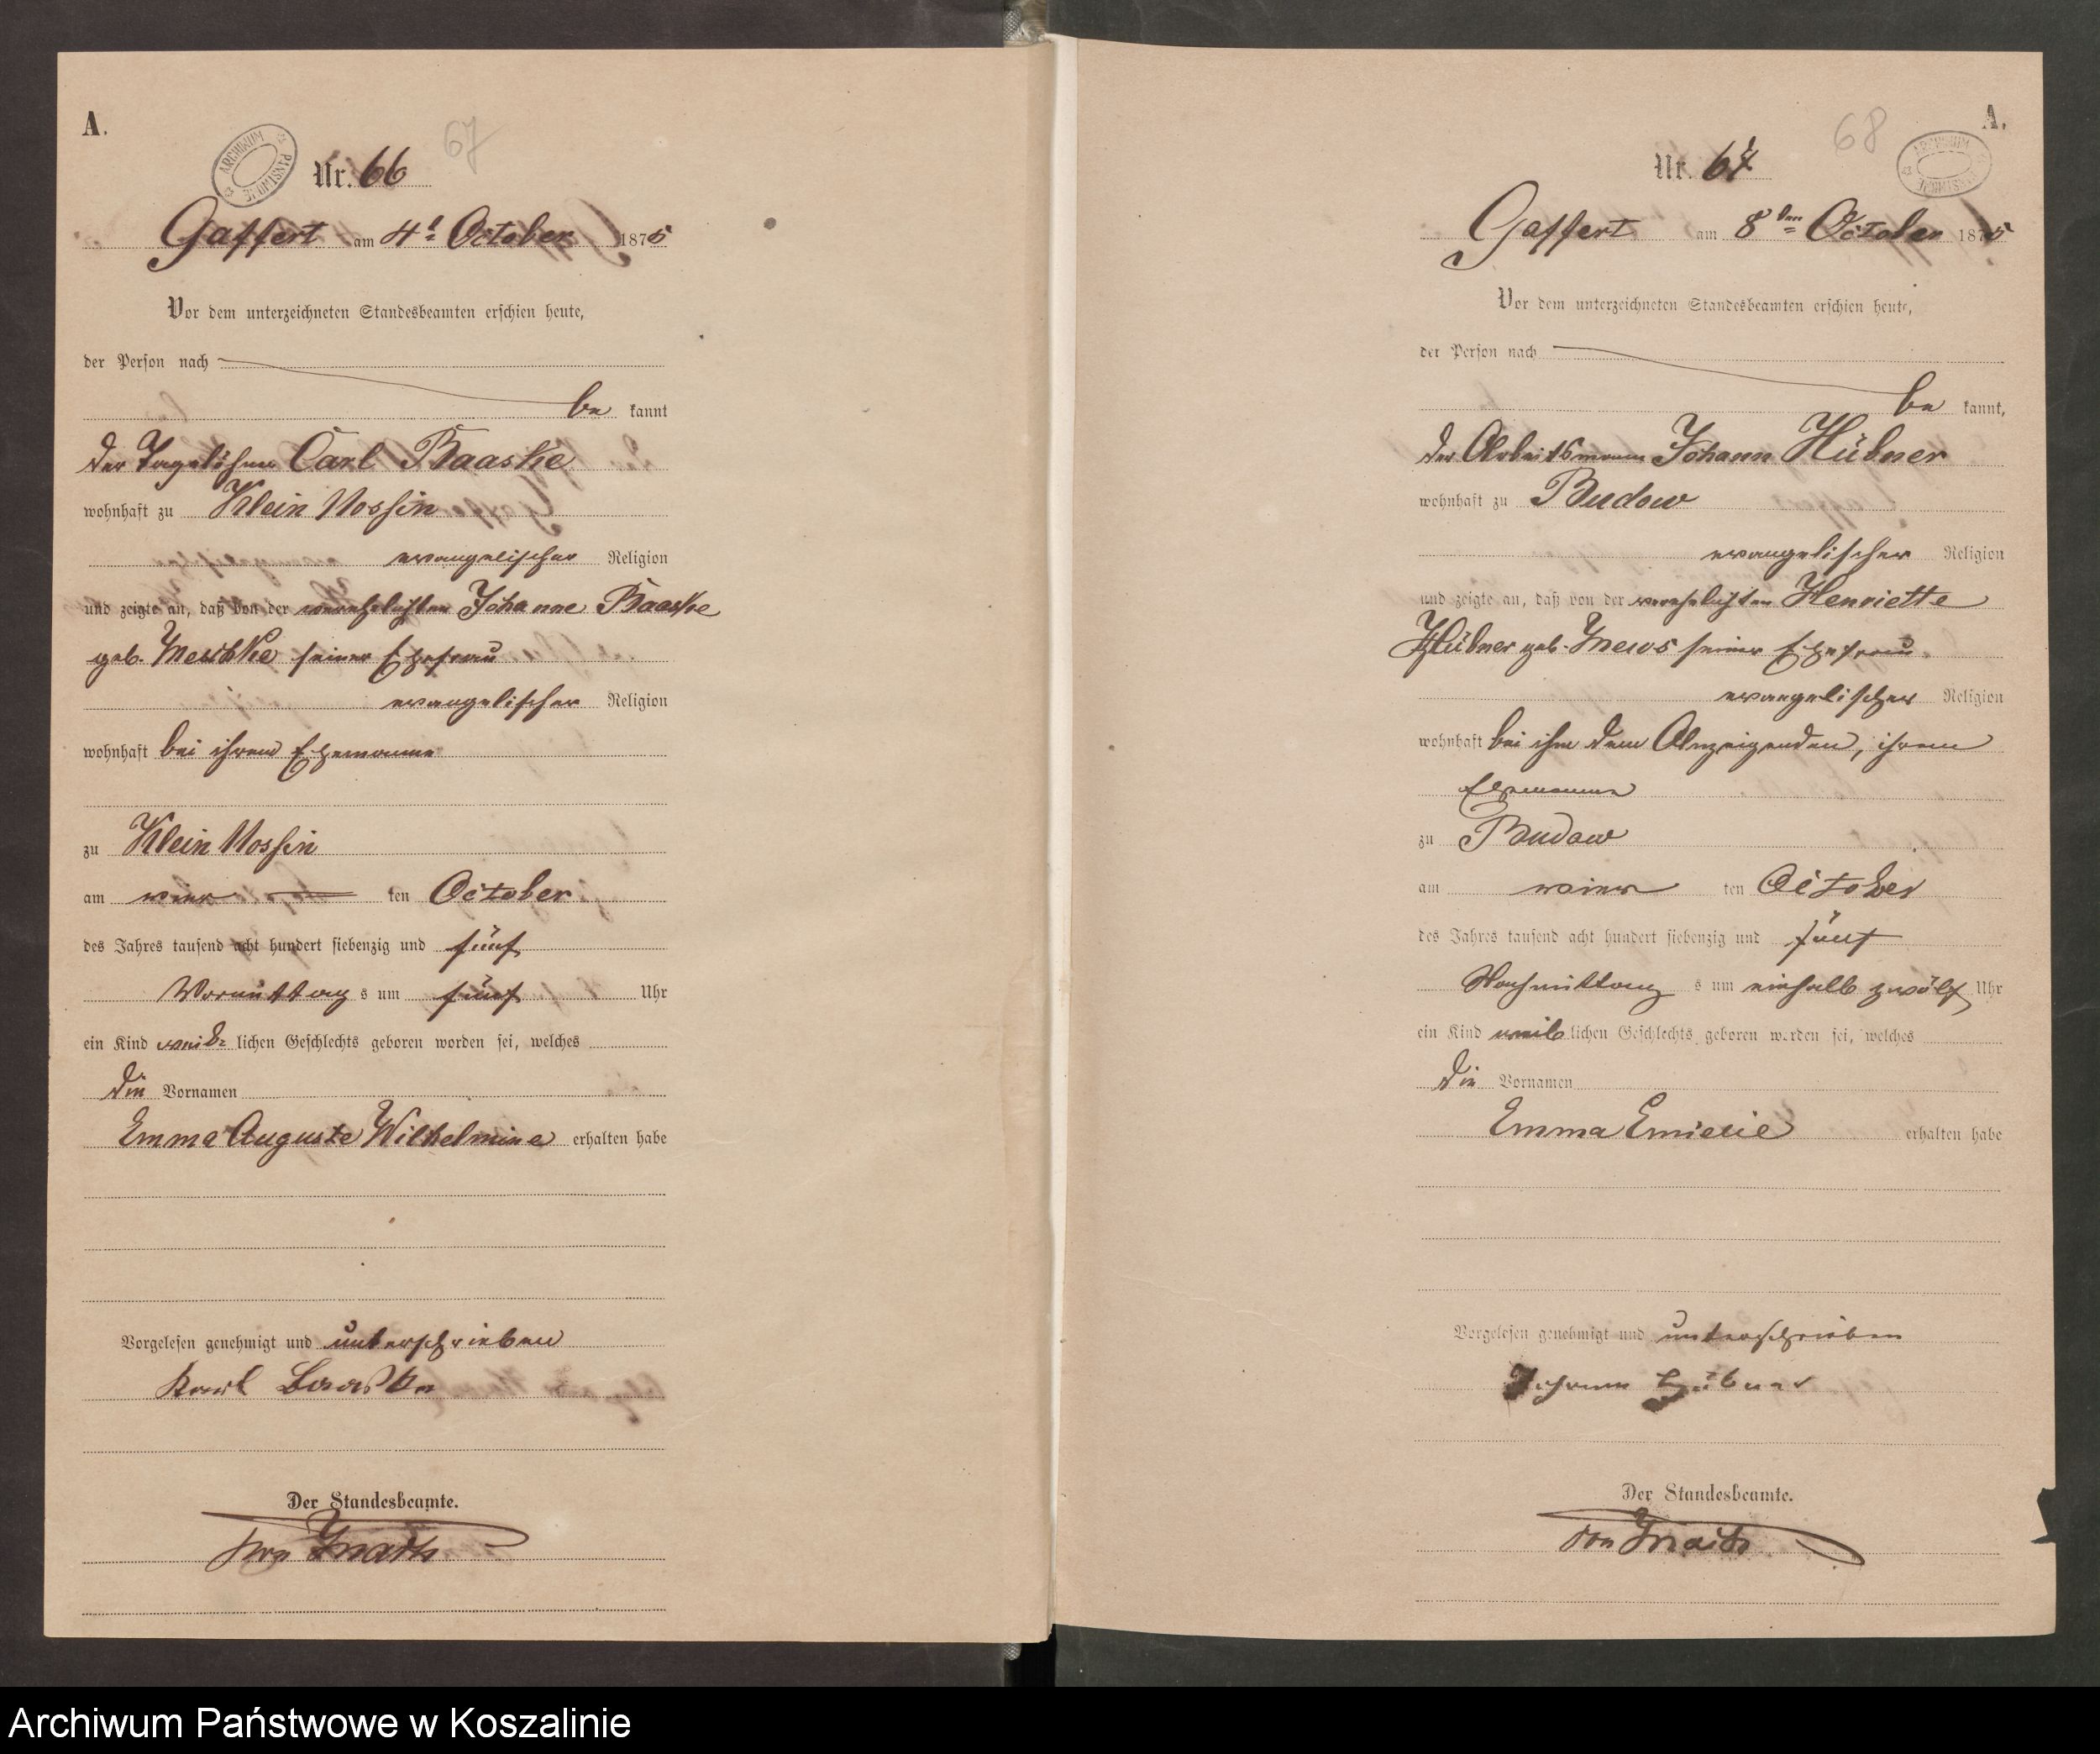 A.
ARCHIWUM PAŃSTWOWE
67
Nr. 66
Gaffert am 4t October 1875
Vor dem unterzeichneten Standesbeamten erschien heute,
der Person nach
be kannt
der Tagelöhner Carl Baaske
wohnhaft zu Klein Nossin
evangelischer Religion
und zeigte an, daß von der verehelichten Johanne Baaske
geb. Meschke seiner Ehefrau
evangelischer Religion
wohnhaft bei ihrem Ehemanne
zu Klein Nossin
am vier ten October
des Jahres tausend acht hundert siebenzig und fünf
Vormittag s um fünf Uhr
ein Kind weib- lichen Geschlechts geboren worden sei, welches
die Vornamen
Emma Auguste Wilhelmine erhalten habe
Vorgelesen genehmigt und unterschrieben
Karl Baaske
Der Standesbeamte.
von
A.
ARCHIWUM PAŃSTWOWE
68
Nr. 67
Gaffert am 8ten October 1875
Vor dem unterzeichneten Standesbeamten erschien heute,
der Person nach
be kannt,
der Arbeitsmann Johann Hübner
wohnhaft zu Budow
evangelischer Religion
und zeigte an, daß von der verehelichten Henriette
Hübner geb. Mews seiner Ehefrau
evangelischer Religion
wohnhaft bei ihm dem Anzeigenden, ihrem
Ehemanne
zu Budow
am vier ten October
des Jahres tausend acht hundert siebenzig und fünf
Nachmittag s um einhalb zwölf Uhr
ein Kind weib lichen Geschlechts geboren worden sei, welches
die Vornamen
Emma Emielie erhalten habe
Vorgelesen genehmigt und unterschrieben
Johann Hübner
Der Standesbeamte.
von
Archiwum Państwowe w Koszalinie